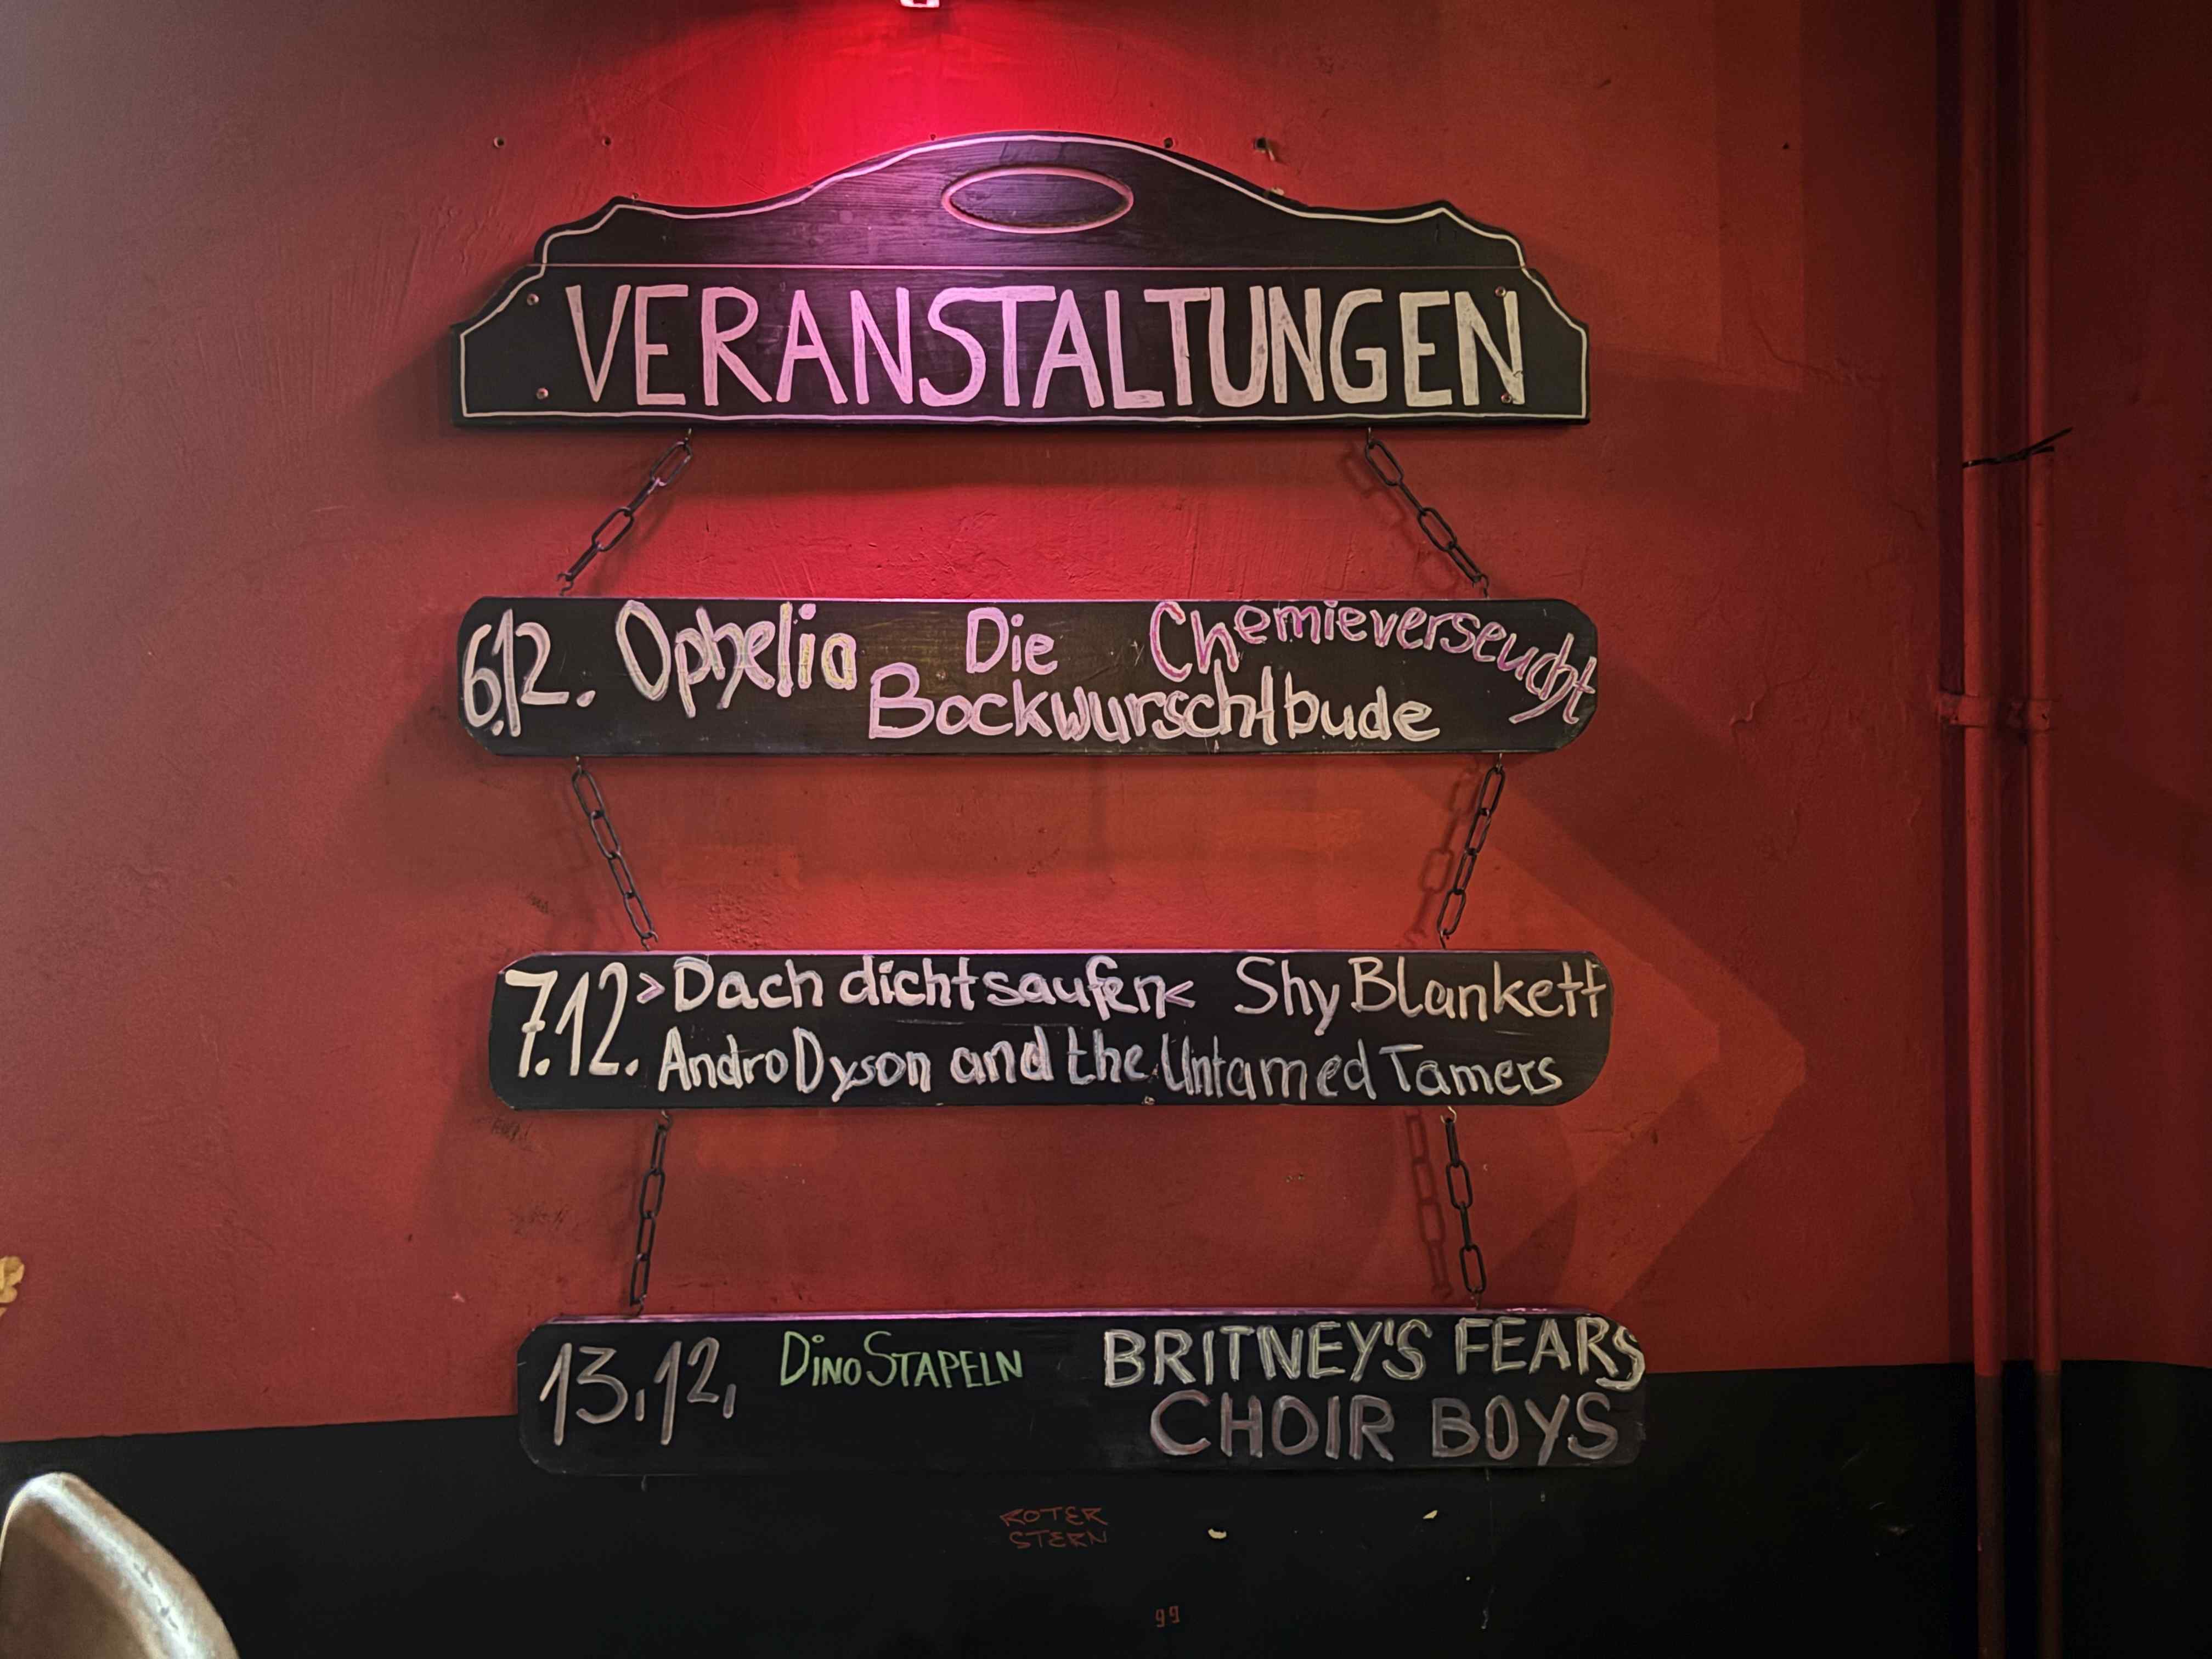 VERANSTALTUNGEN
6.12. Ophelia Die Chemieverseucht
Bockwurschtbude
7.12. >Dach dichtsaufen< Shy Blankett
Andro Dyson and the Untamed Tamers
13.12. DINO STAPELN BRITNEY'S FEARS
CHOIR BOYS
ROTER
STERN
99